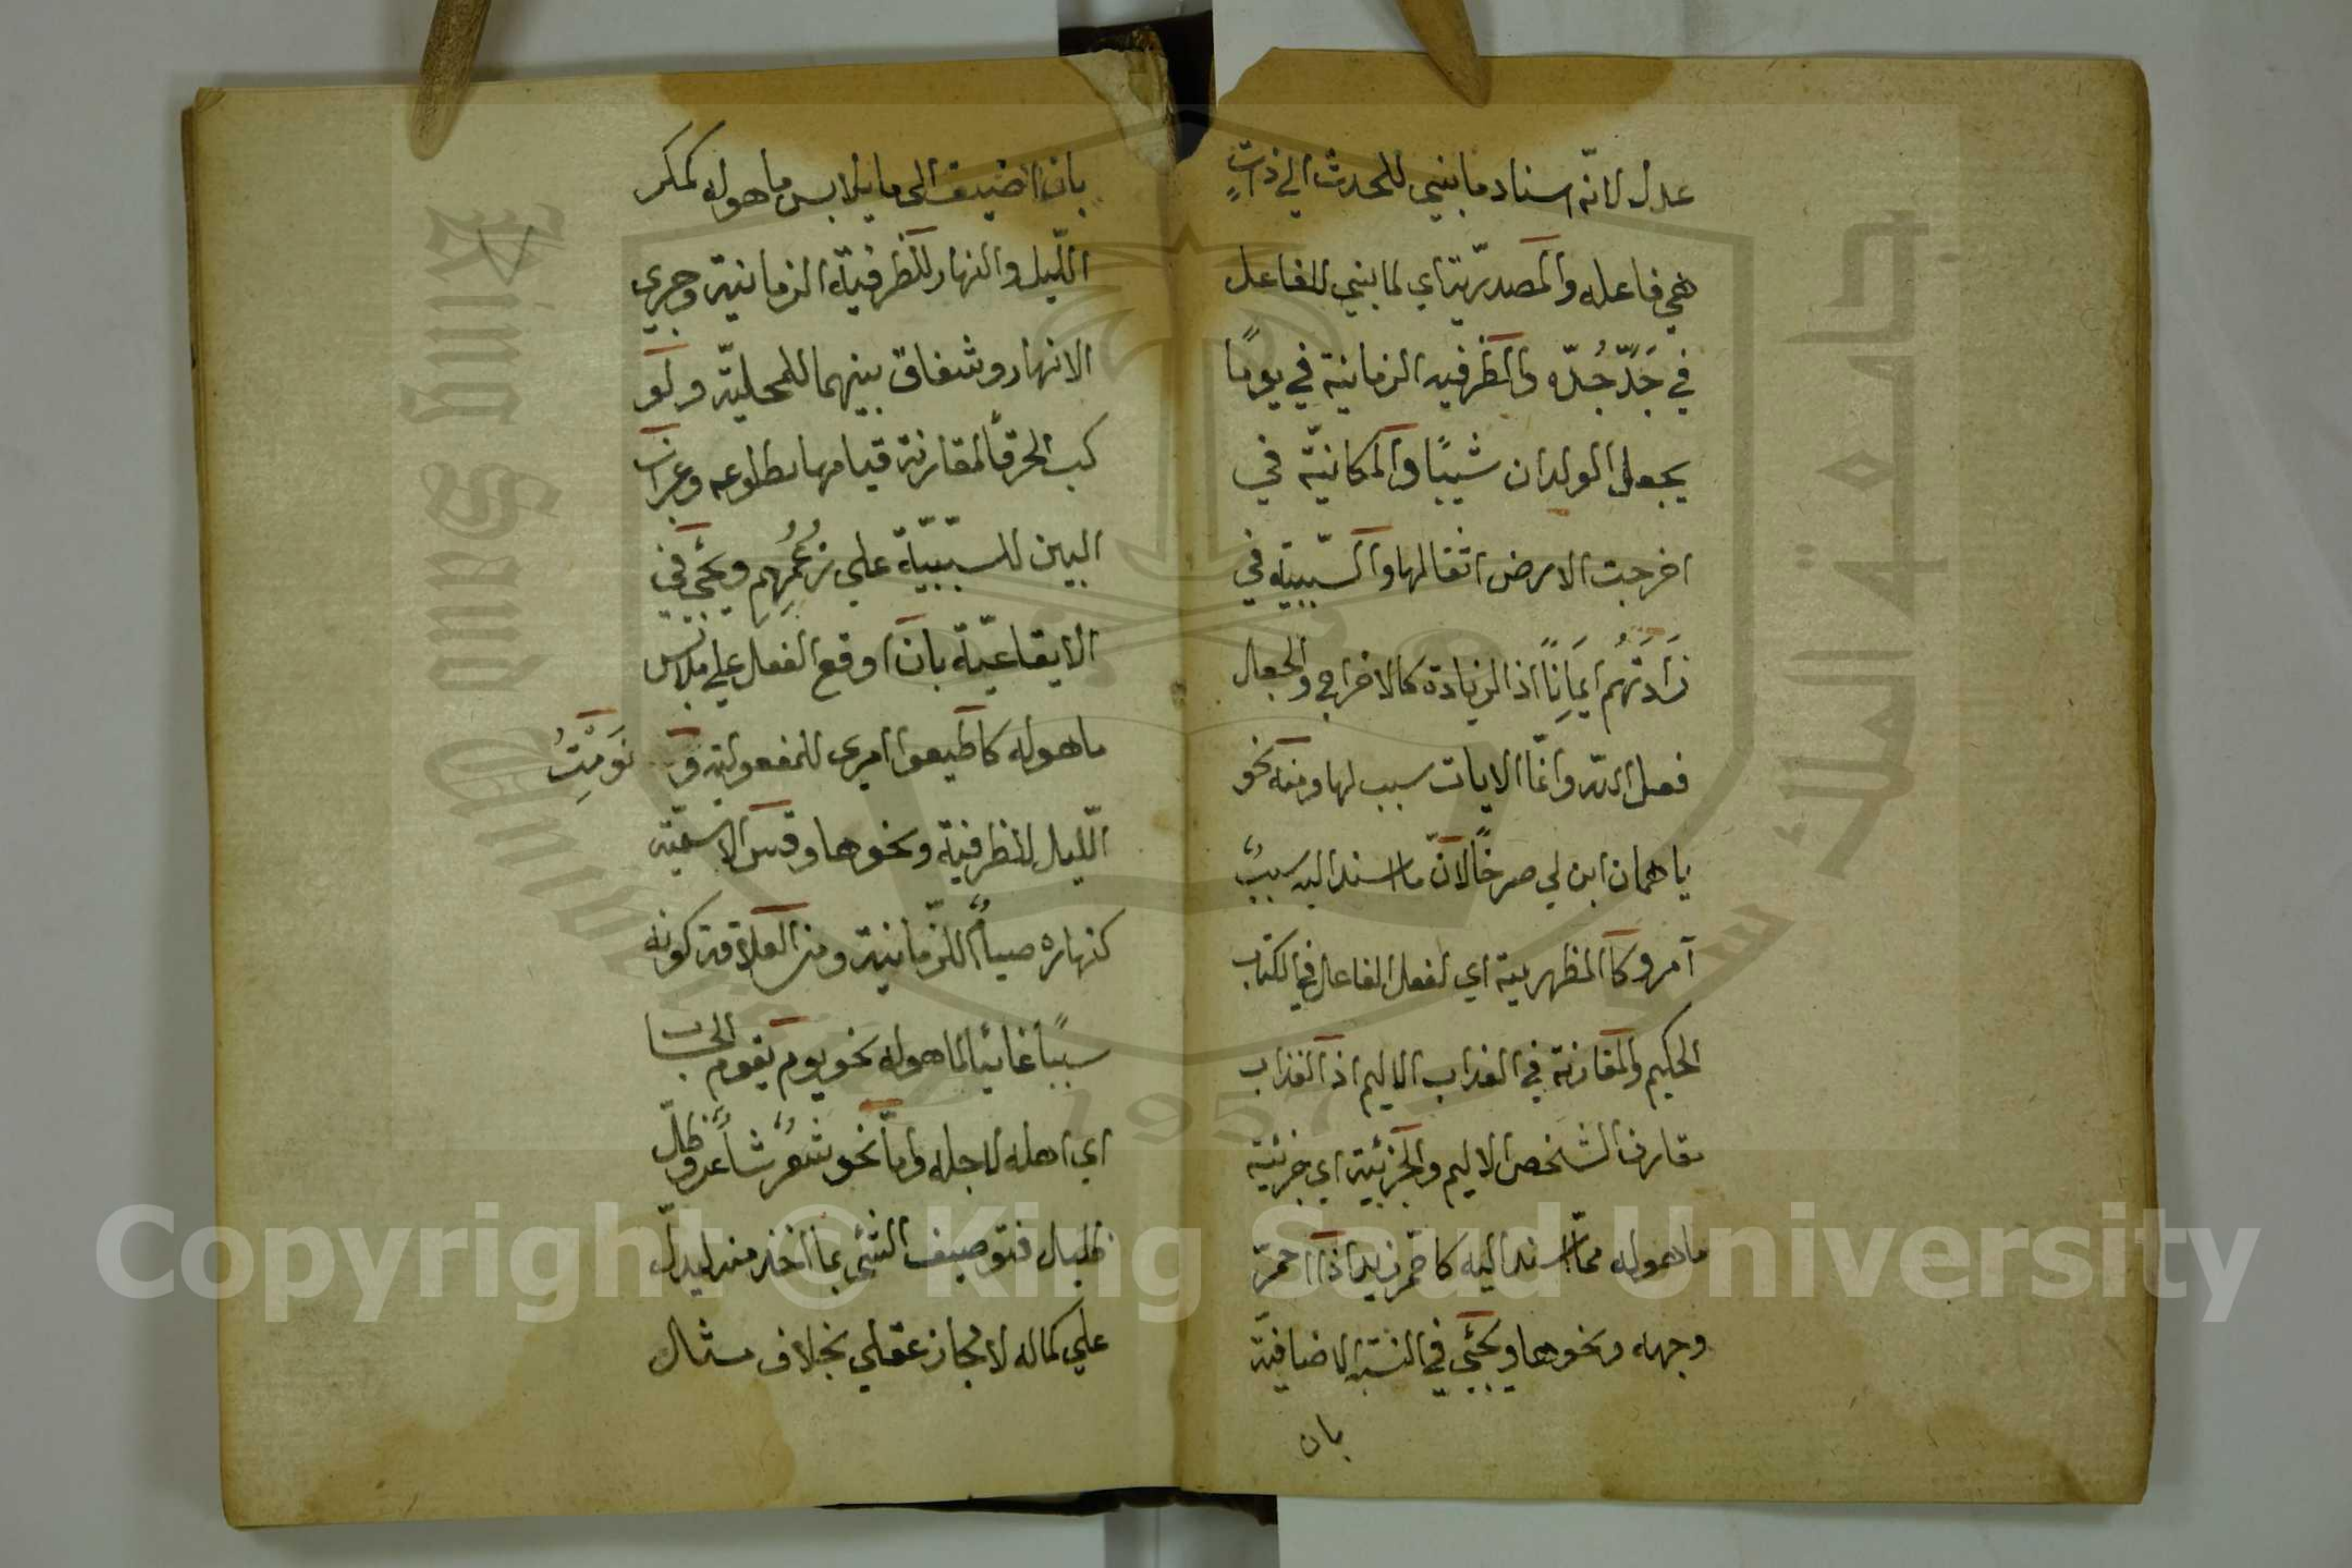 عدل لانّه اسناد ما بني للحدث الي ذاتٍ
هي فاعله والمصدريّة اي لما بني للفاعل
في جَدَّ جُدّه والظرفيه الزمانية في يومًا
يجعل الولدان شيبًا والمكانيّة في
اخرجت الارض اثقالها والسّببيّة في
زَادَتْهُم ايمَانًا اذ الزيادة كالاخراج والجعل
فعل اللّه وانّما الايات سبب لها ومنه نحو
يا همان ابن لي صرحًا لانّ ما اسند اليه سببٌ
آمر وكا المظهرية اي لفعل الفاعل في الكتاب
الحكيم والمقارنة في العذاب الاليم اذ العذاب
مقارن الشخص الاليم والجزئية اي جزئية
ما هو له ممّا اسند اليه كاحمّر زيد اذا احمرّ
وجهه ونحوها ويجئي في النسبة الاضافيّة
بان
بان اضيف الي ما يلابس ما هو له كمكر
اللّيل والنهار للظرفيّة الزمانية وجري
الانهار وشقاق بينهما للمحليّة وكو
كب الخرقأ لمقارنة قيامها بطلوعه وغراب
البين للسببيّة علي زُعْمِهِم ويجئي في
الايقاعيّة بان اوقع الفعل علي ملابس
ما هو له كاطيعوا امري للمفعولية و نَوَّمْتُ
اللّيل للظرفيّة ونحوها وقس الاسميّة
كنهاره صيامٌ للزّمانية ومن العلاقة كونه
سببًا غائيا لما هو له نحو يوم يقوم الحساب
اي اهله لاجله وامّا نحو شعرٌ شاعرٌ وظلّ
ظليل فتوصيف الشئي بما اخذ منه ليدلّ
علي كماله لا مجاز عقلي بخلاف مثال
جامعة الملك سعود
King Saud University
1957
Copyright © King Saud University